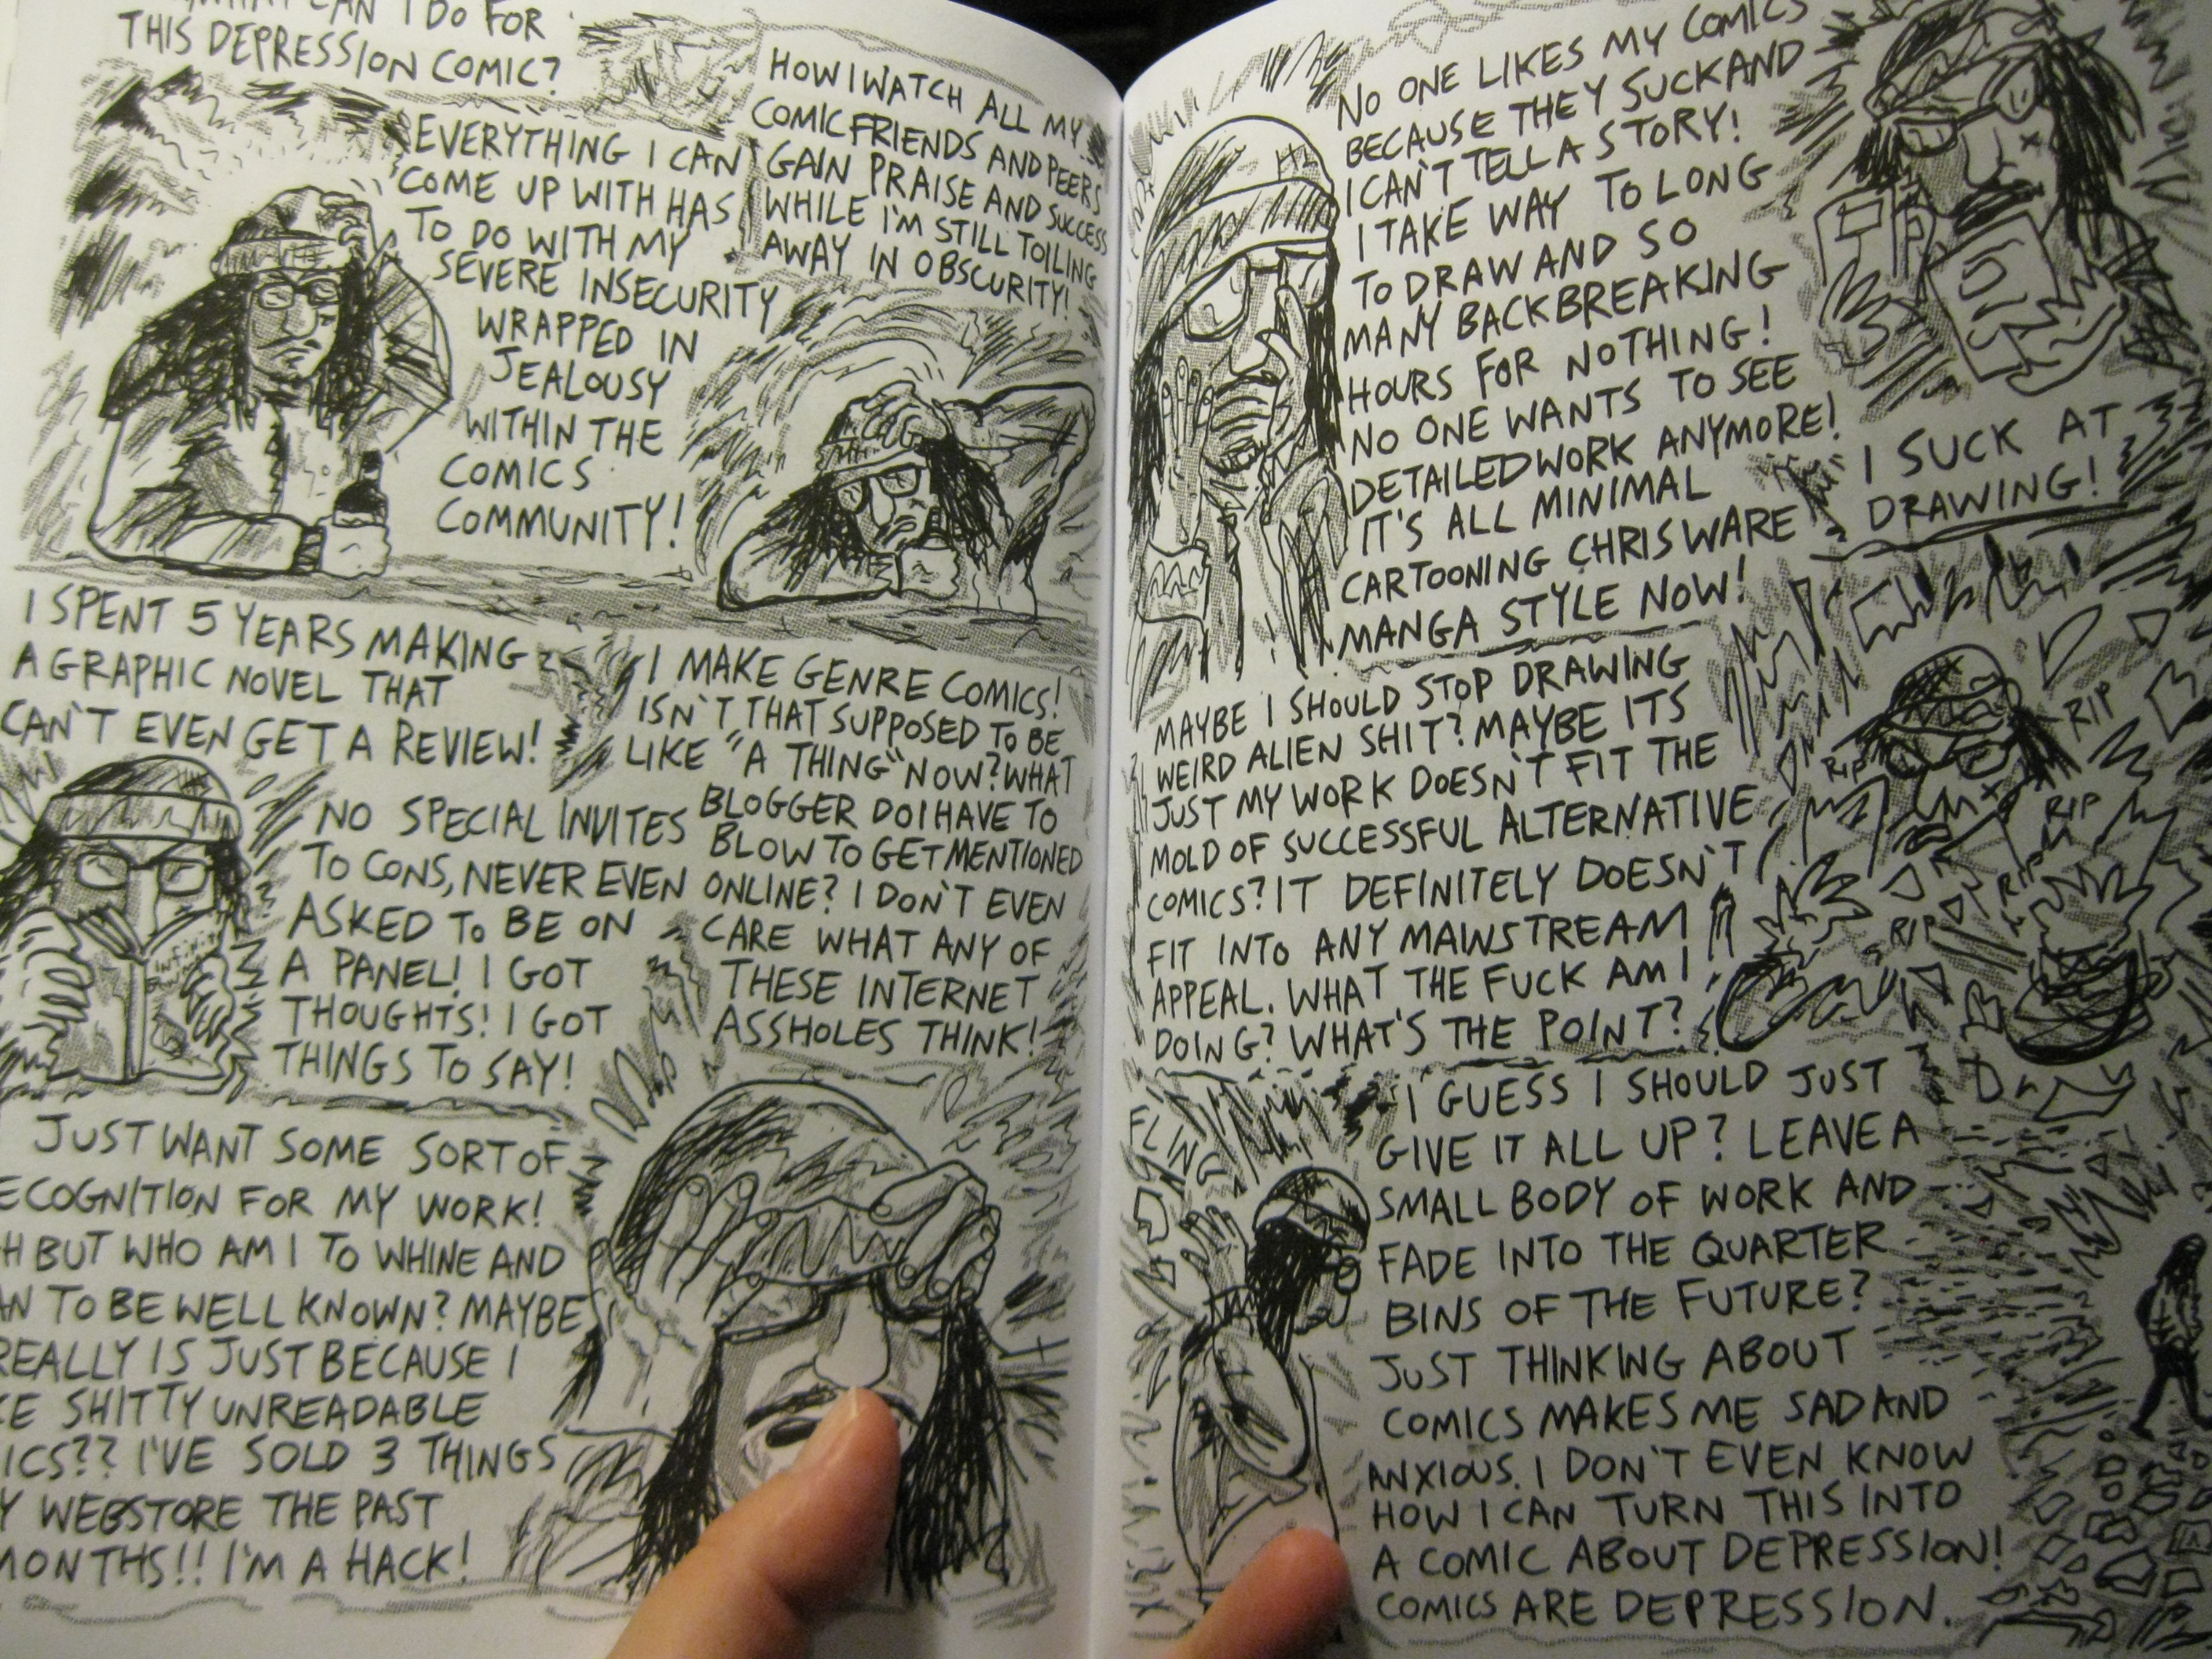 WHAT CAN I DO FOR
THIS DEPRESSION COMIC?
EVERYTHING I CAN
COME UP WITH HAS
TO DO WITH MY
SEVERE INSECURITY
WRAPPED IN
JEALOUSY
WITHIN THE
COMICS
COMMUNITY!
HOW I WATCH ALL MY
COMIC FRIENDS AND PEERS
GAIN PRAISE AND SUCCESS
WHILE I'M STILL TOILING
AWAY IN OBSCURITY!
I SPENT 5 YEARS MAKING
A GRAPHIC NOVEL THAT
CAN'T EVEN GET A REVIEW!
NO SPECIAL INVITES
TO CONS, NEVER EVEN
ASKED TO BE ON
A PANEL! I GOT
THOUGHTS! I GOT
THINGS TO SAY!
I MAKE GENRE COMICS!
ISN'T THAT SUPPOSED TO BE
LIKE "A THING" NOW? WHAT
BLOGGER DO I HAVE TO
BLOW TO GET MENTIONED
ONLINE? I DON'T EVEN
CARE WHAT ANY OF
THESE INTERNET
ASSHOLES THINK!
JUST WANT SOME SORT OF
ECOGNITION FOR MY WORK!
H BUT WHO AM I TO WHINE AND
AN TO BE WELL KNOWN? MAYBE
REALLY IS JUST BECAUSE I
KE SHITTY UNREADABLE
ICS?? I'VE SOLD 3 THINGS
Y WEBSTORE THE PAST
MONTHS!! I'M A HACK!
NO ONE LIKES MY COMICS
BECAUSE THEY SUCK AND
I CAN'T TELL A STORY!
I TAKE WAY TO LONG
TO DRAW AND SO
MANY BACKBREAKING
HOURS FOR NOTHING!
NO ONE WANTS TO SEE
DETAILED WORK ANYMORE!
IT'S ALL MINIMAL
CARTOONING CHRIS WARE
MANGA STYLE NOW!
I SUCK AT
DRAWING!
MAYBE I SHOULD STOP DRAWING
WEIRD ALIEN SHIT? MAYBE ITS
JUST MY WORK DOESN'T FIT THE
MOLD OF SUCCESSFUL ALTERNATIVE
COMICS? IT DEFINITELY DOESN'T
FIT INTO ANY MAINSTREAM
APPEAL. WHAT THE FUCK AM I
DOING? WHAT'S THE POINT?
RIP
RIP
RIP
RIP
RIP
FLING
I GUESS I SHOULD JUST
GIVE IT ALL UP? LEAVE A
SMALL BODY OF WORK AND
FADE INTO THE QUARTER
BINS OF THE FUTURE?
JUST THINKING ABOUT
COMICS MAKES ME SAD AND
ANXIOUS. I DON'T EVEN KNOW
HOW I CAN TURN THIS INTO
A COMIC ABOUT DEPRESSION!
COMICS ARE DEPRESSION.